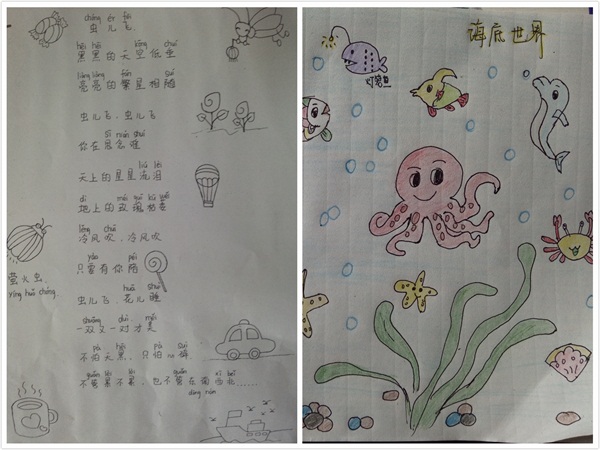 chóng ér fēi
虫儿飞
hēi hēi kōng chuí
黑黑的天空低垂
liàng liàng fán suí
亮亮的繁星相随
虫儿飞,虫儿飞
sī niàn shuí
你在思念谁
liú lèi
天上的星星流泪
dì méi guī kū wěi
地上的玫瑰枯萎
lěng chuī
冷风吹,冷风吹
yào péi
只要有你陪
huā shuì
虫儿飞,花儿睡
shuāng duì měi
一双又一对才美
pà hēi pà suì
不怕天黑,只怕心碎
guǎn lèi lèi guǎn xī běi
不管累不累,也不管东南西北……
dōng nán
萤火虫
yíng huǒ chóng
海底世界
灯笼鱼